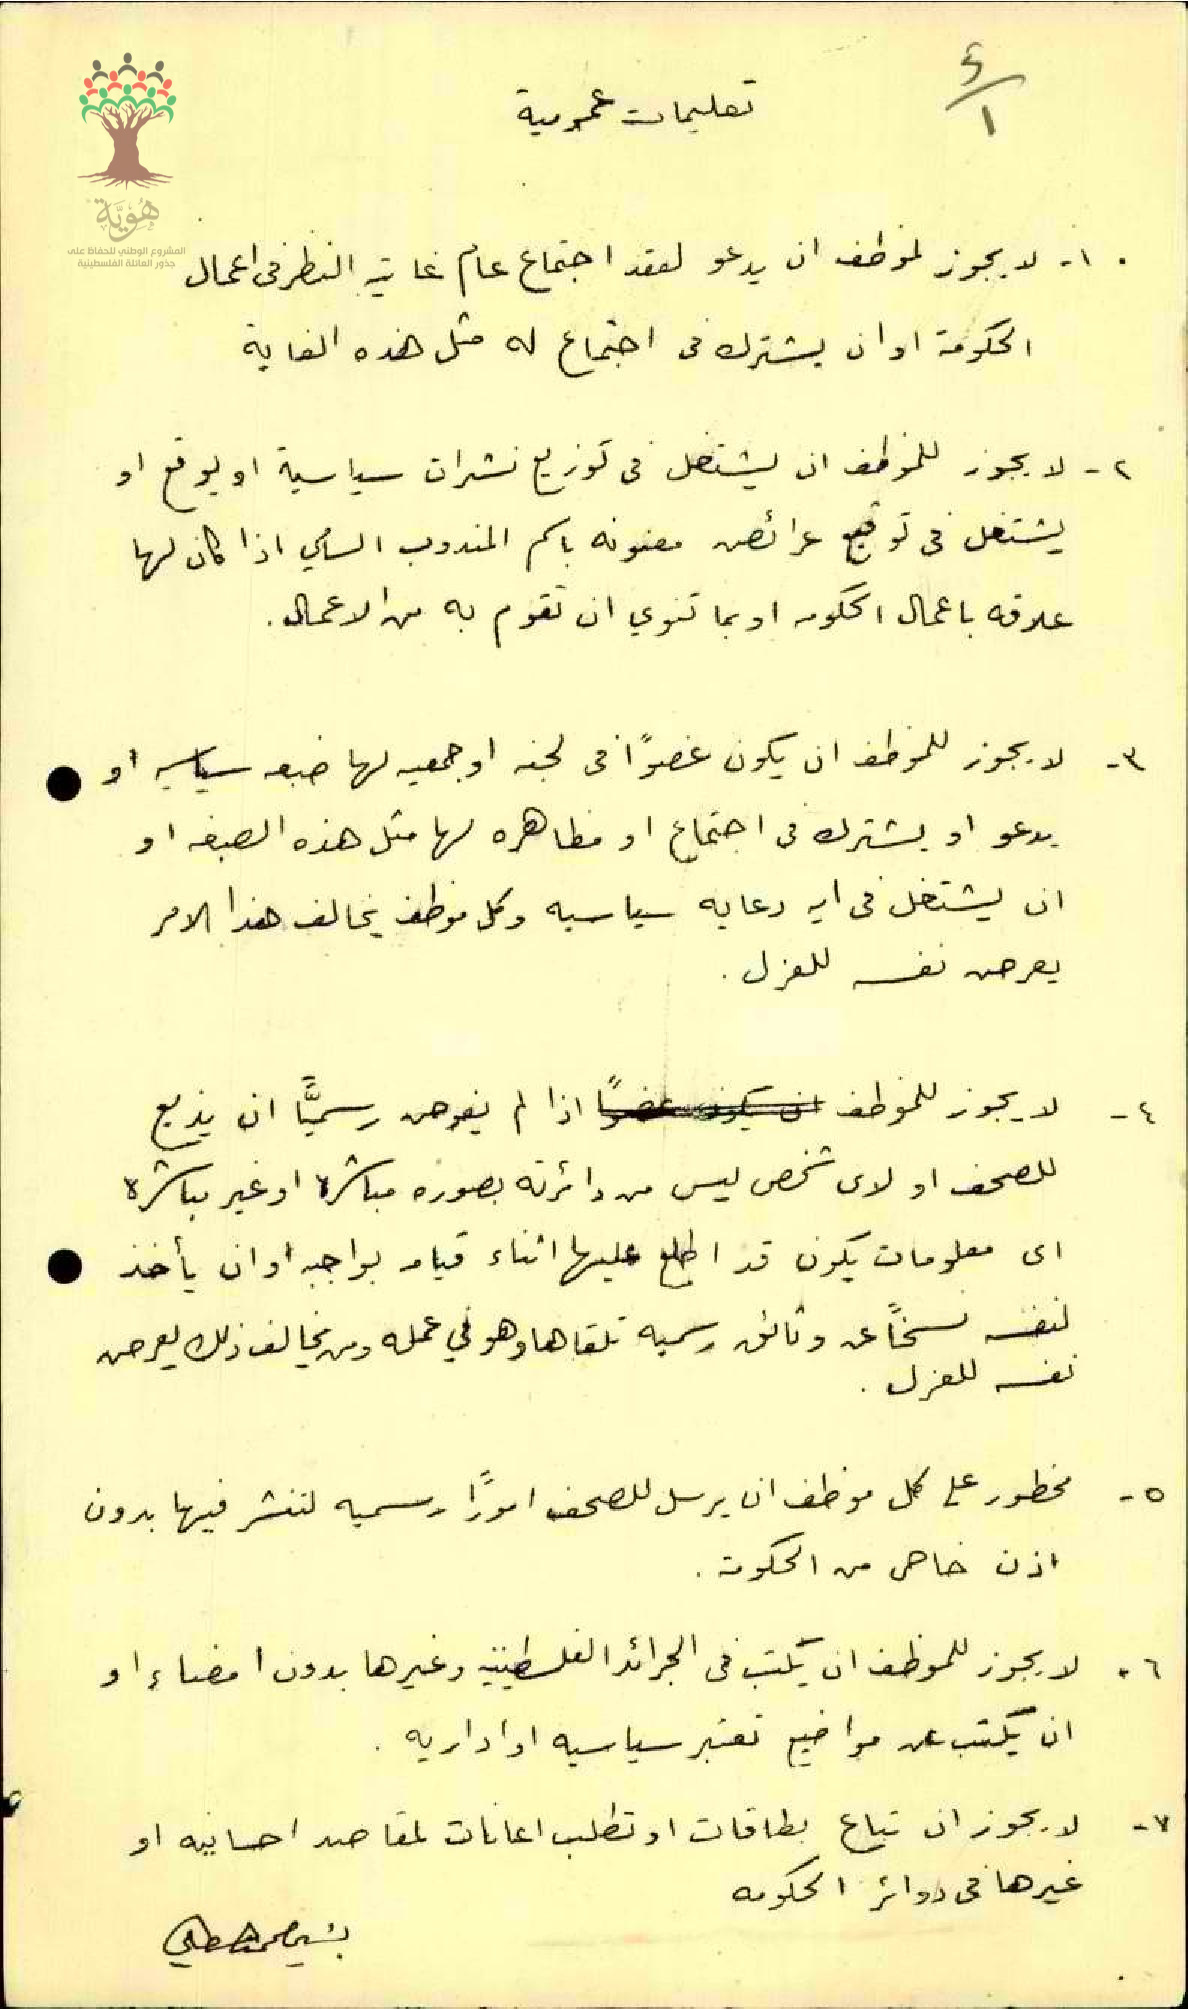 ٤/١
تعليمات عمومية
هُوِيَّة
المشروع الوطني للحفاظ على
جذور العائلة الفلسطينية
١- لا يجوز لموظف ان يدعو لعقد اجتماع عام غايته النظر فى اعمال
الحكومة او ان يشترك فى اجتماع له مثل هذه الغاية
٢- لا يجوز للموظف ان يشتغل فى توزيع نشرات سياسية او يوقع او
يشتغل فى توقيع عرائض معنونه باسم المندوب السامي اذا كان لها
علاقه باعمال الحكومه او بما تنوي ان تقوم به من الاعمال.
٣- لا يجوز للموظف ان يكون عضوًا فى لجنه او جمعيه لها صبغه سياسيه او
يدعو او يشترك فى اجتماع او مظاهره لها مثل هذه الصبغه او
ان يشتغل فى ايه دعايه سياسيه وكل موظف يخالف هذا الامر
يعرض نفسه للعزل.
٤- لا يجوز للموظف ان يكون عضوًا اذا لم يفوض رسميًّا ان يذيع
للصحف او لاى شخص ليس من دائرته بصوره مباشرة او غير مباشرة
اى معلومات يكون قد اطلع عليها اثناء قيامه بواجبه او ان يأخذ
لنفسه نسخًا عن وثائق رسميه تلقاها وهو في عمله ومن يخالف ذلك يعرض
نفسه للعزل.
٥- محظور على كل موظف ان يرسل للصحف امورًا رسميه لتنشر فيها بدون
اذن خاص من الحكومة.
٦- لا يجوز للموظف ان يكتب فى الجرائد الفلسطينيه وغيرها بدون امضاء او
ان يكتب عن مواضيع تعتبر سياسيه او اداريه.
٧- لا يجوز ان تباع بطاقات او تطلب اعانات لمقاصد احسانيه او
غيرها فى دوائر الحكومه